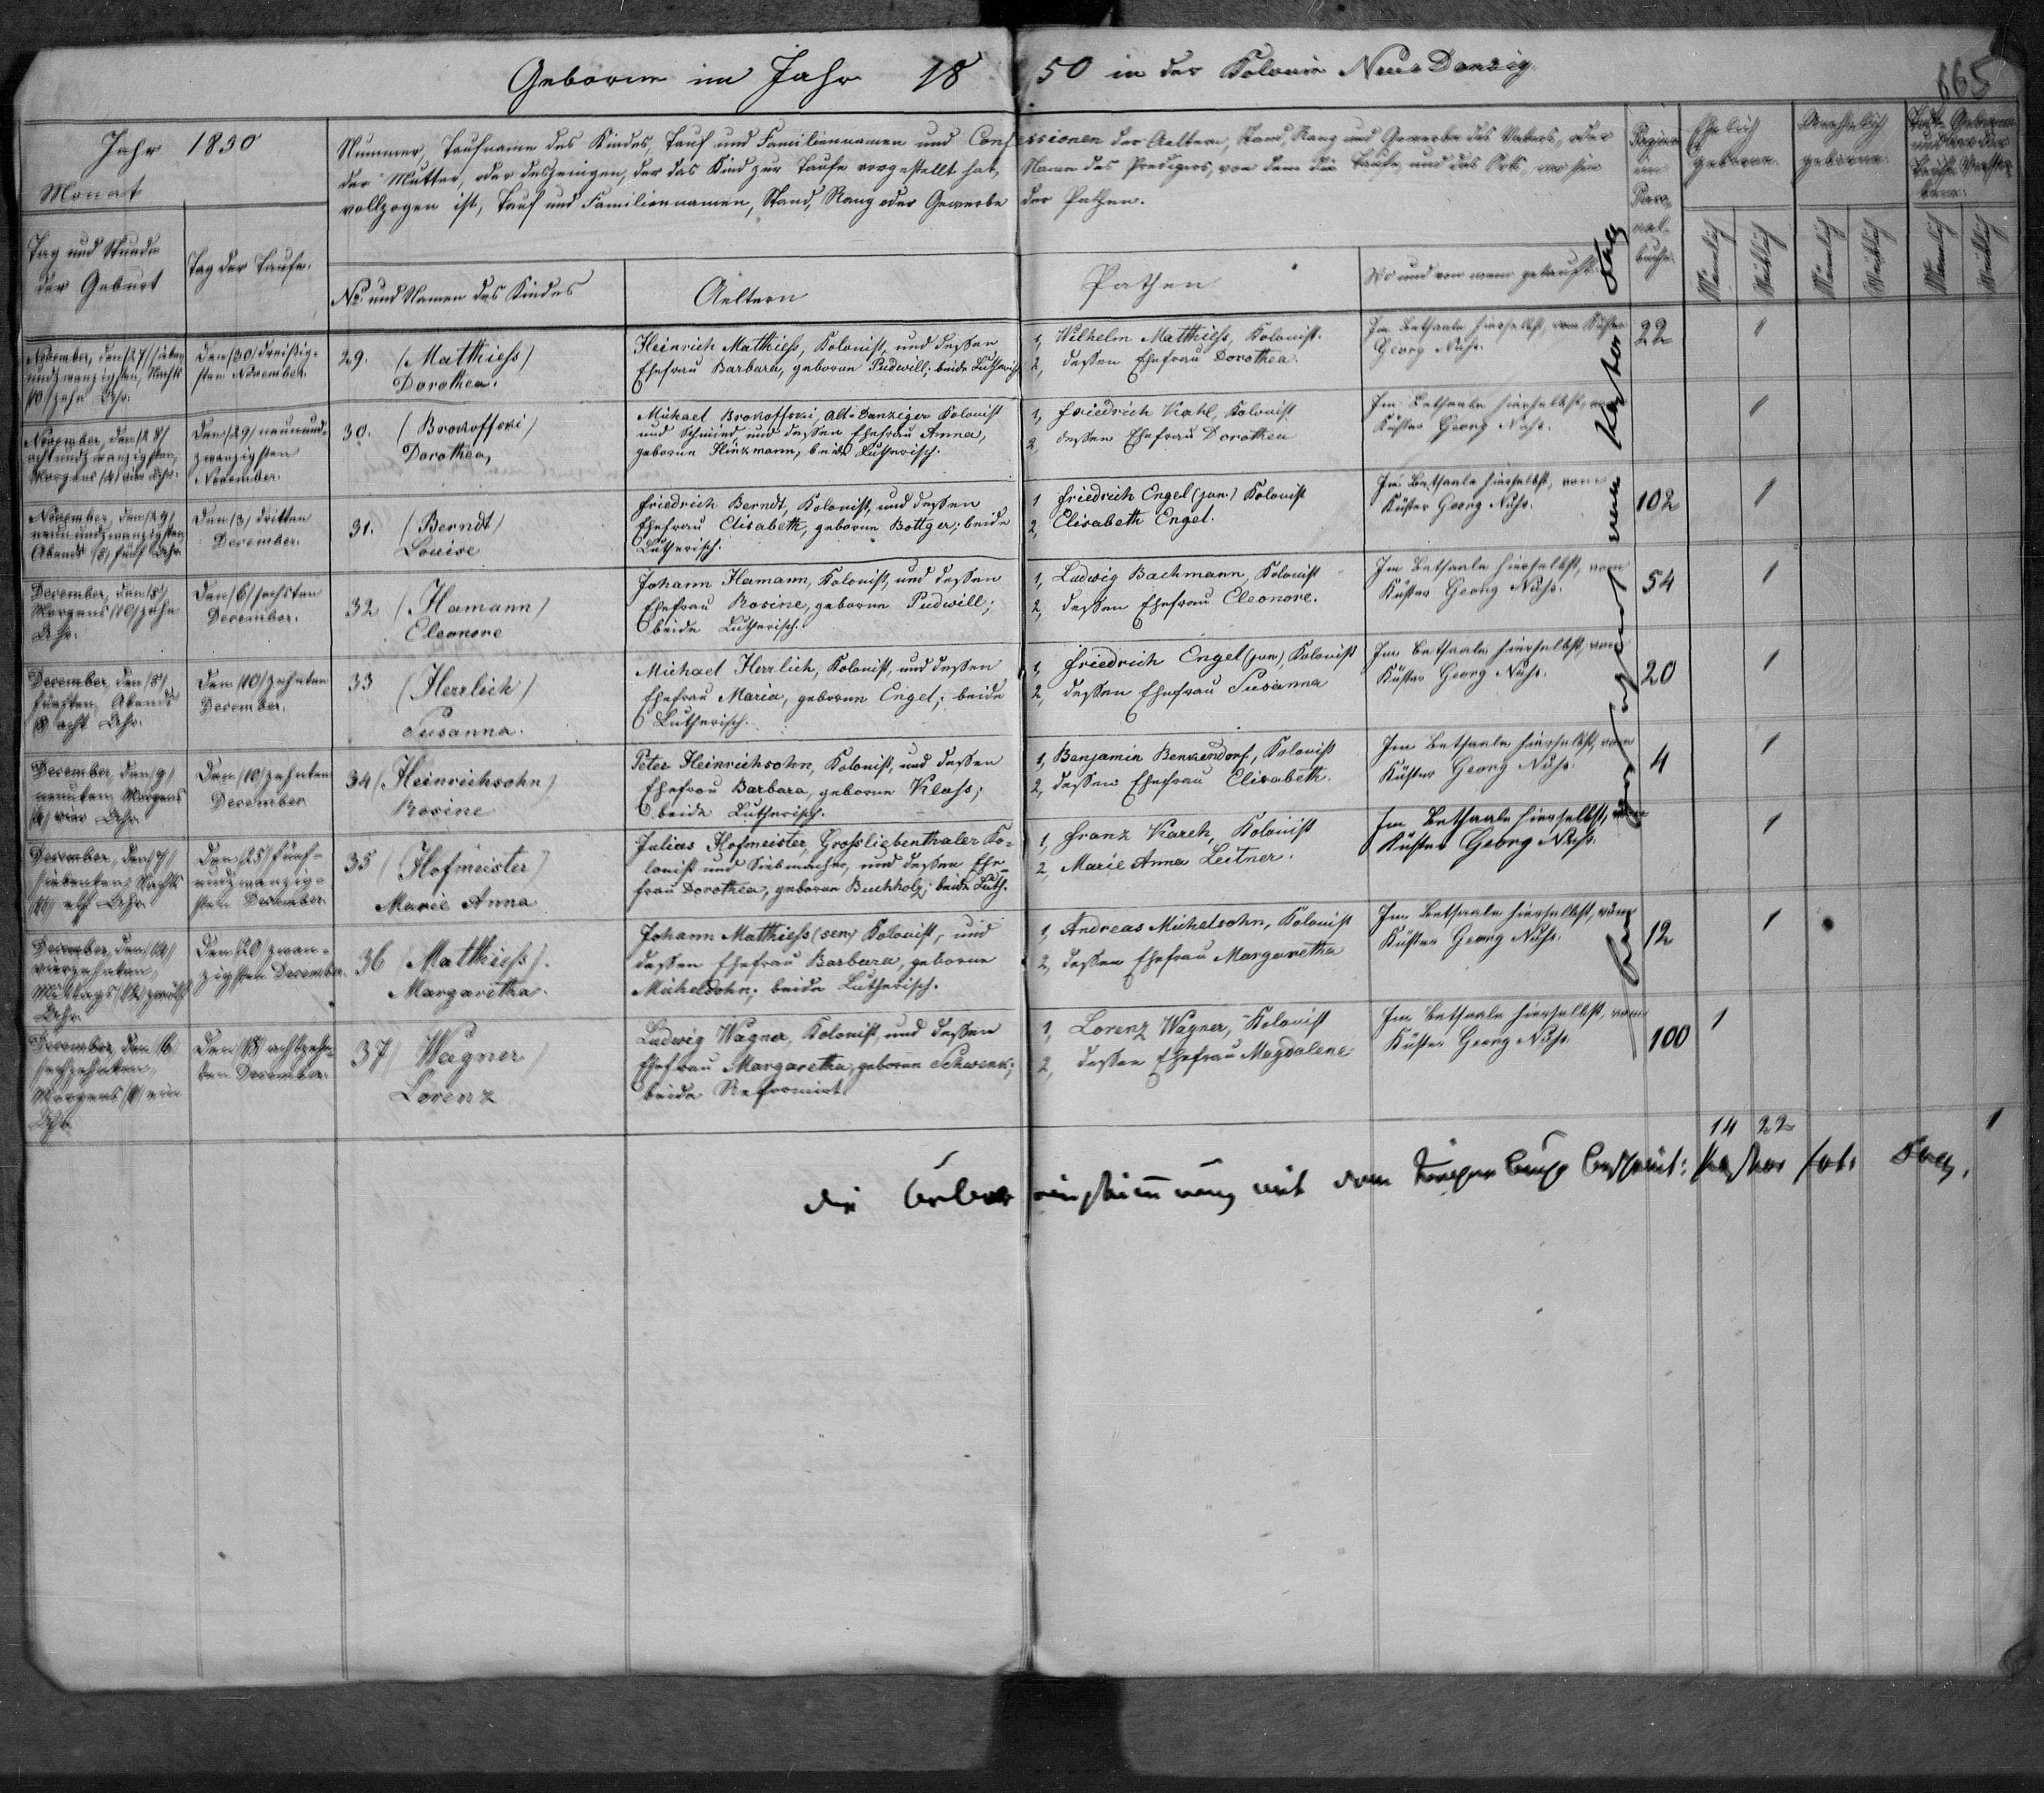 Geborne im Jahr 1850 in der Kolonie Neu-Danzig.
665
Jahr 1850
Monat
Nummer, Taufname des Kindes, Tauf und Familiennamen und Confessionen der Aeltern, Stand, Rang und Gewerbe des Vaters, oder
der Mutter, oder desjenigen, der das Kind zur Taufe vorgestellt hat, Namen des Predigers, von dem die Taufe, und des Orts, wo sie
vollzogen ist, Tauf und Familiennamen, Stand, Rang oder Gewerbe der Pathen.
Pagina
im
Perso-
nal-
buche.
Ehelich
geborne.
Unehelich
geborne.
Männlich
Weiblich
Männlich
Weiblich
Männlich
Weiblich
Tag und Stunde
der Geburt
Tag der Taufe.
No und Namen des Kindes
Aeltern
Pathen
Wo und von wem getauft.
November, den (27) sieben
undzwanzigsten, Nachts
(10) zehn Uhr.
Den (30) dreißig-
sten November.
29. (Matthiess)
Dorothea.
Heinrich Matthiess, Kolonist, und dessen
Ehefrau Barbara, geborne Pudwill; beide Lutherisch
1, Wilhelm Matthiess, Kolonist.
2, dessen Ehefrau Dorothea.
Im Betsaale hierselbst, vom Küster
Georg Nuss.
22
1
November, den (28)
achtundzwanzigsten,
Morgens (4) vier Uhr.
Den (29) neunund-
zwanzigsten
November.
30. (Brokoffski)
Dorothea,
Michael Brokoffski, Alt-Danziger Kolonist
und Schmied, und dessen Ehefrau Anna,
geborne Hinzmann, beide Lutherisch.
1, Friedrich Kahl, Kolonist
2, dessen Ehefrau Dorothea
Im Betsaale hierselbst, vom
Küster Georg Nuss.
1
November, den (29)
neunundzwanzigsten
Abends (5) fünf Uhr
Den (3) dritten
December.
31. (Berndt)
Louise
Friedrich Berndt, Kolonist, und dessen
Ehefrau Elisabeth, geborne Bottger; beide
Lutherisch.
1 Friedrich Engel (jun.) Kolonist
2, Elisabeth Engel.
Im Betsaale hierselbst, vom
Küster Georg Nuss.
102
1
December, den (5)
Morgens (10) zehn
Uhr.
Den (6) sechsten
December.
32 (Hamann)
Eleonore
Johann Hamann, Kolonist, und dessen
Ehefrau Rosine, geborne Pudwill;
beide Lutherisch.
1, Ludwig Bachmann, Kolonist
2, dessen Ehefrau Eleonore.
Im Betsaale hierselbst, vom
Küster Georg Nuss.
54
1
December, den (5)
fünften, Abends
(8) acht Uhr.
Den (10) zehnten
December.
33 (Herrlich)
Susanna.
Michael Herrlich, Kolonist, und dessen
Ehefrau Maria, geborne Engel; beide
Lutherisch.
1, Friedrich Engel (jun), Kolonist
2, dessen Ehefrau Susanna
Im Betsaale hierselbst, vom
Küster Georg Nuss.
20
1
December, den (9)
neunten, Morgens
(4) vier Uhr.
Den (10) zehnten
December
34 (Heinrichsohn)
Rosine
Peter Heinrichsohn, Kolonist, und dessen
Ehefrau Barbara, geborne Klass;
beide Lutherisch.
1, Benjamin Benkendorf, Kolonist
2, dessen Ehefrau Elisabeth.
Im Betsaale hierselbst, vom
Küster Georg Nuss.
4
1
December, den (7)
siebenten, Nachts
(11) elf Uhr
Den (25) fünf-
undzwanzig-
sten December
35 (Hofmeister)
Marie Anna
Julias Hofmeister, Grossliebenthaler Ko-
lonist und Siebmacher, und dessen Ehe-
frau Dorothea, geborne Buchholz; beide Luth.
1, Franz Karch, Kolonist
2, Marie Anna Leitner.
Im Betsaale hierselbst, vom
Küster Georg Nuss.
1
December, den (14)
vierzehnten,
Mittags (12) zwölf
Uhr
Den (20) zwan-
zigsten December.
36 (Matthiess).
Margaretha.
Johann Matthiess (sen) Kolonist, und
dessen Ehefrau Barbara, geborne
Michelsohn; beide Lutherisch.
1, Andreas Michelsohn, Kolonist
2, dessen Ehefrau Margaretha
Im Betsaale hierselbst, vom
Küster Georg Nuss.
12
1
December, den (16)
sechzehnten,
Morgens (1) ein
Uhr
Den (18) achtzehn-
ten December.
37 (Wagner)
Lorenz
Ludwig Wagner, Kolonist, und dessen
Ehefrau Margaretha, geborne Schwenk;
beide Reformirt
1, Lorenz Wagner, Kolonist
2, dessen Ehefrau Magdalene
Im Betsaale hierselbst, vom
Küster Georg Nuss.
100
1
14 22 1
die Uebereinstimmung mit dem Kirchenbuche bescheint: Pastor